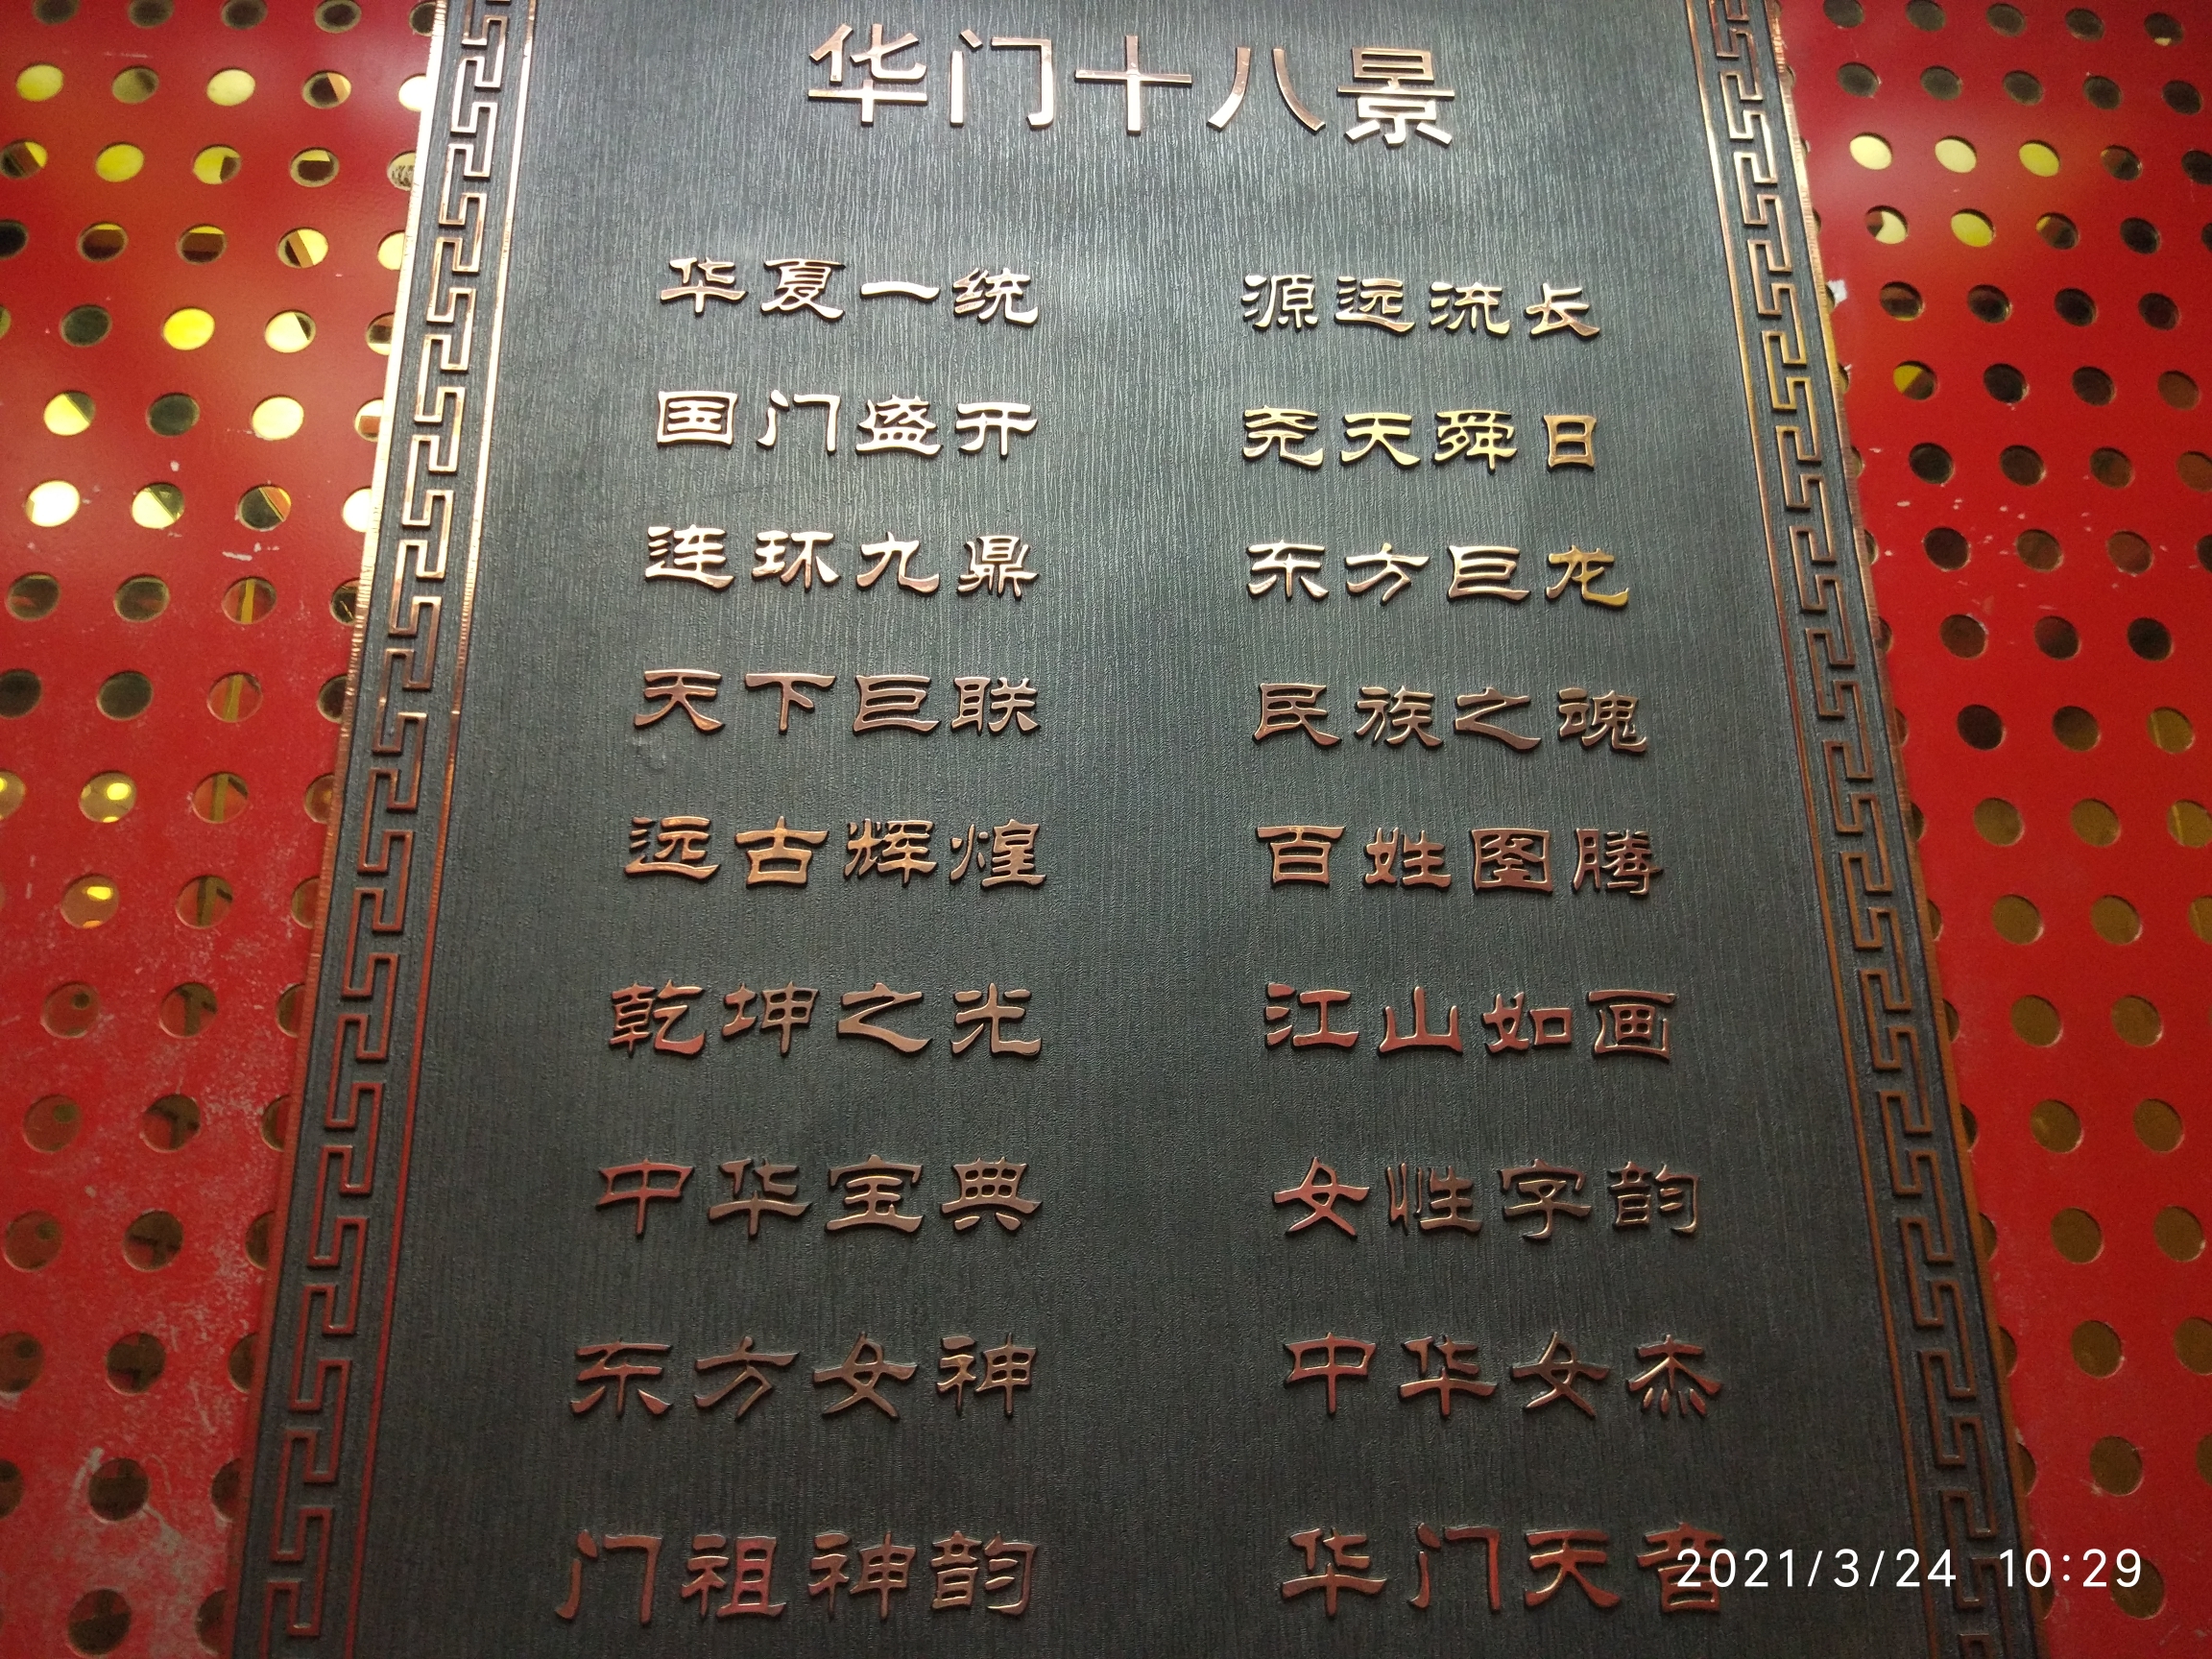 华门十八景
华夏一统 源远流长
国门盛开 尧天舜日
连环九鼎 东方巨龙
天下巨联 民族之魂
远古辉煌 百姓图腾
乾坤之光 江山如画
中华宝典 女性字韵
东方女神 中华女杰
门祖神韵 华门天音
2021/3/24 10:29